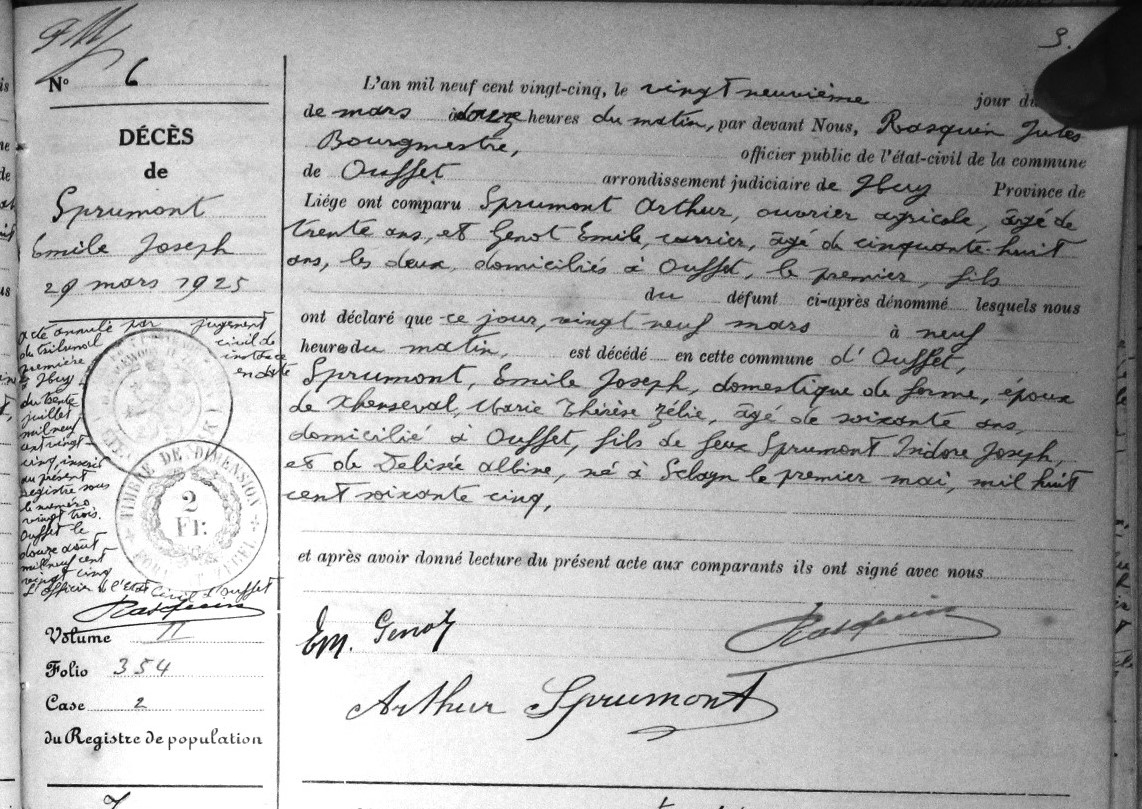 3.
N° 6
DÉCÈS
de
Sprumont
Emile Joseph
29 mars 1925
acte annulé par jugement
du tribunal civil de
première instance
Huy en date
du trente
juillet
mil neuf
cent vingt-
cinq, inscrit
au présent
registre sous
le numéro
vingt trois.
Ouffet le
douze août
mil neuf cent
vingt cinq
L'officier de l'état civil d'Ouffet
Rasquin
TIMBRE DE DIMENSION
2
Fr.
Volume 11
Folio 354
Case 2
du Registre de population
L'an mil neuf cent vingt-cinq, le vingt neuvième jour du
de mars à douze heures du matin, par devant Nous, Rasquin Jules
Bourgmestre, officier public de l'état-civil de la commune
de Ouffet arrondissement judiciaire de Huy Province de
Liége ont comparu Sprumont Arthur, ouvrier agricole, âgé de
trente ans, et Genot Emile, carrier, âgé de cinquante-huit
ans, les deux domiciliés à Ouffet, le premier, fils
du défunt ci-après dénommé lesquels nous
ont déclaré que ce jour, vingt neuf mars à neuf
heures du matin, est décédé en cette commune d'Ouffet,
Sprumont, Emile Joseph, domestique de ferme, époux
de Xhenseval, Marie Thérèse Zélie, âgé de soixante ans,
domicilié à Ouffet, fils de feux Sprumont Isidore Joseph,
et de Delisée Albine, né à Sclayn le premier mai, mil huit
cent soixante cinq,
et après avoir donné lecture du présent acte aux comparants ils ont signé avec nous
Em. Genot
Rasquin
Arthur Sprumont
7